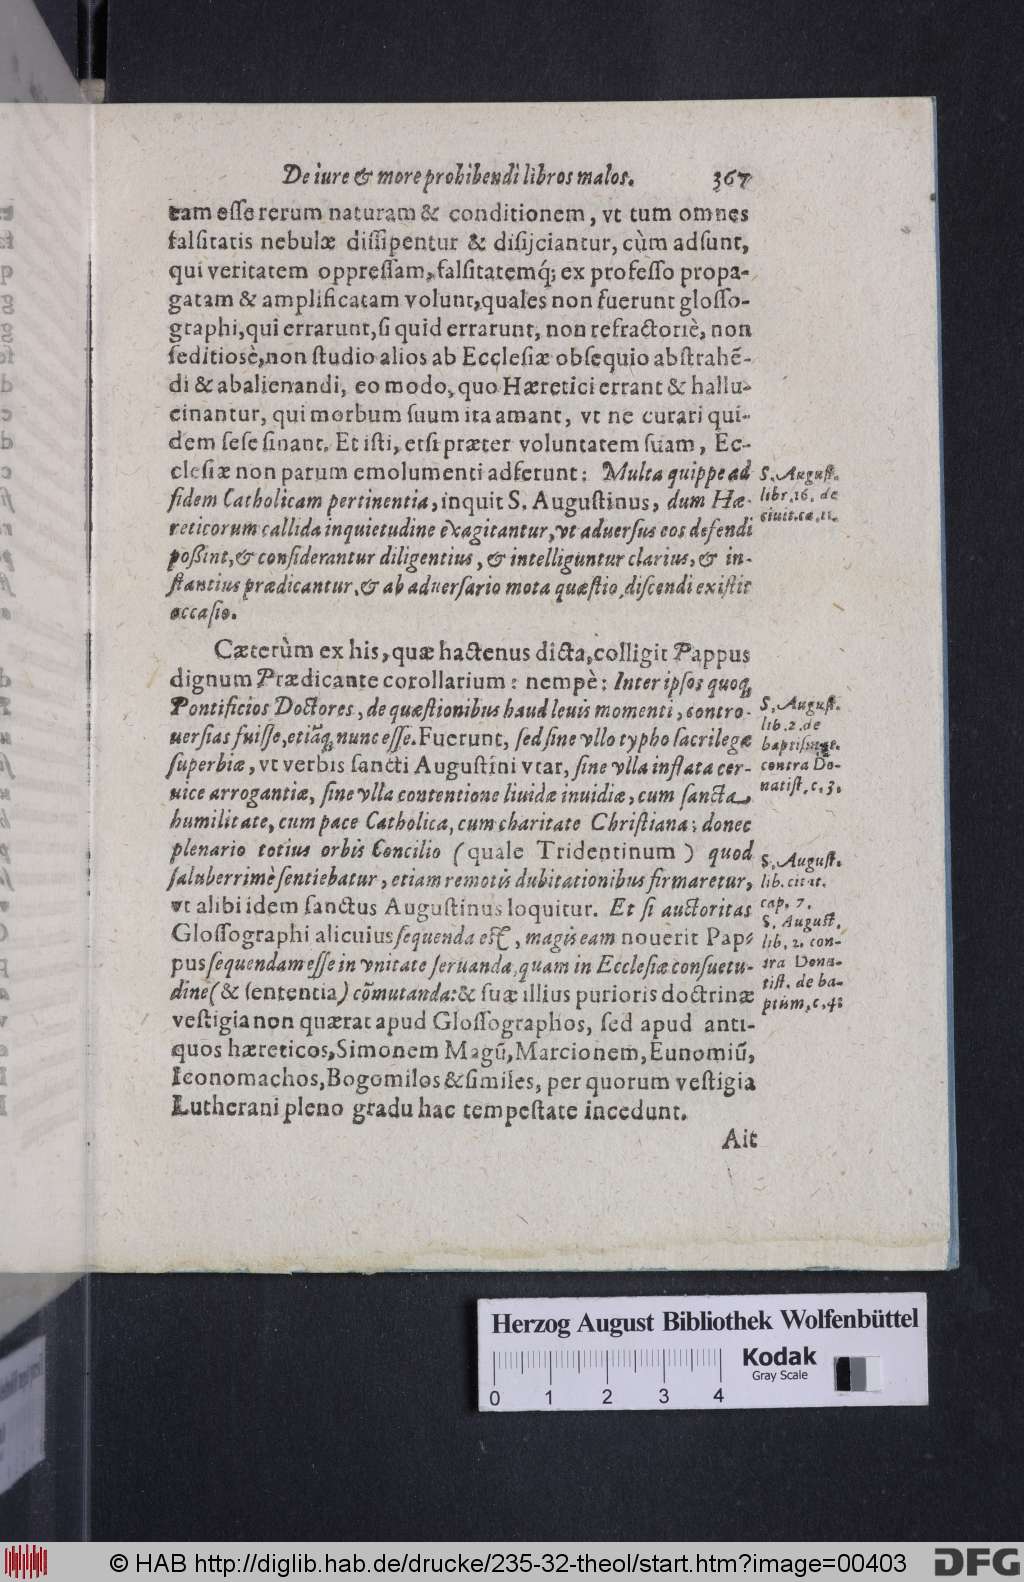 De iure & more prohibendi libros malos. 367
eam esse rerum naturam & conditionem, vt tum omnes
falsitatis nebulæ dissipentur & disijciantur, cùm adsunt,
qui veritatem oppressam, falsitatemq́; ex professo propa-
gatam & amplificatam volunt, quales non fuerunt glosso-
graphi, qui errarunt, si quid errarunt, non refractoriè, non
seditiosè, non studio alios ab Ecclesiæ obsequio abstrahē-
di & abalienandi, eo modo, quo Hæretici errant & hallu-
cinantur, qui morbum suum ita amant, vt ne curari qui-
dem sese sinant. Et isti, etsi præter voluntatem suam, Ec-
clesiæ non parum emolumenti adferunt: Multa quippe ad
fidem Catholicam pertinentia, inquit S. Augustinus, dum Hæ-
reticorum callida inquietudine exagitantur, vt aduersus eos defendi
poßint, & considerantur diligentius, & intelliguntur clarius, & in-
stantius prædicantur, & ab aduersario mota quæstio, discendi existit
occasio.
S. August.
libr. 16. de
ciuit. ca. 11.
Cæterùm ex his, quæ hactenus dicta, colligit Pappus
dignum Prædicante corollarium: nempè: Inter ipsos quoq́
Pontificios Doctores, de quæstionibus haud leuis momenti, contro-
uersias fuisse, etiāq́ nunc esse. Fuerunt, sed sine vllo typho sacrilegæ
superbiæ, vt verbis sancti Augustini vtar, sine vlla inflata cer-
uice arrogantiæ, sine vlla contentione liuidæ inuidiæ, cum sancta
humilitate, cum pace Catholica, cum charitate Christiana; donec
plenario totius orbis Concilio (quale Tridentinum) quod
saluberrimè sentiebatur, etiam remotis dubitationibus firmaretur,
vt alibi idem sanctus Augustinus loquitur. Et si auctoritas
Glossographi alicuius sequenda est, magis eam nouerit Pap-
pus sequendam esse in vnitate seruanda, quam in Ecclesiæ consuetu-
dine (& sententia) cōmutanda: & suæ illius purioris doctrinæ
vestigia non quærat apud Glossographos, sed apud anti-
quos hæreticos, Simonem Magū, Marcionem, Eunomiū,
Iconomachos, Bogomilos & similes, per quorum vestigia
Lutherani pleno gradu hac tempestate incedunt.
S. August.
lib. 2. de
baptismate.
contra Do-
natist. c. 3.
S. August.
lib. citat.
cap. 7.
S. August.
lib. 2. con-
tra Dona-
tist. de ba-
ptism. c. 4.
Ait
Herzog August Bibliothek Wolfenbüttel
Kodak
Gray Scale
0 1 2 3 4
© HAB http://diglib.hab.de/drucke/235-32-theol/start.htm?image=00403
DFG